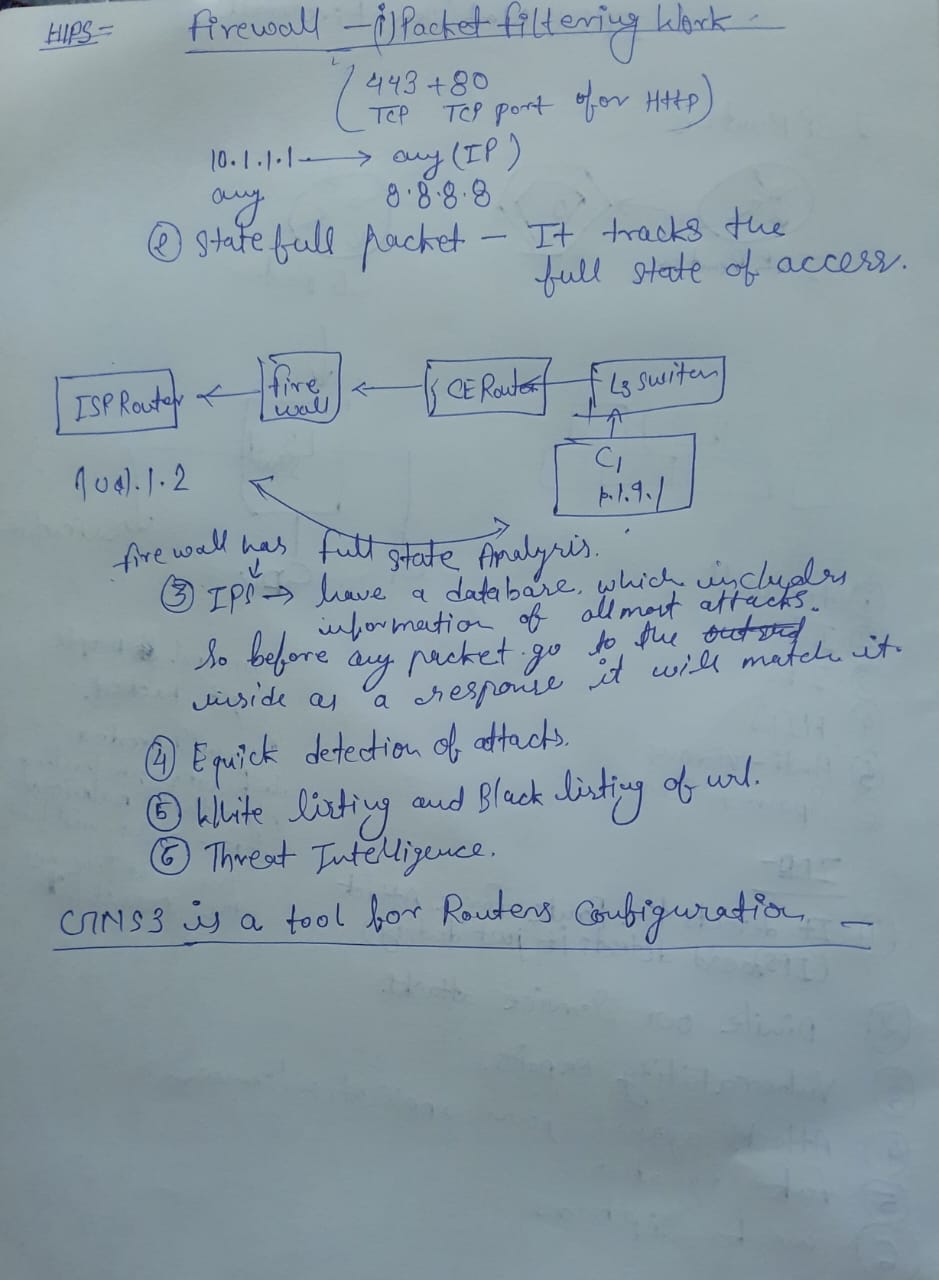 HIPS =
Firewall - (i) Packet filtering Work -
(443 + 80
TCP TCP port for Http)
10.1.1.1 → any (IP)
any 8.8.8.8
② Statefull packet - It tracks the
full state of access.
ISP Router ← fire wall ← CE Router ← L3 Switch
C1
.1.2
firewall has full state Analysis.
③ IPS → have a database, which includes
information of allmost attacks.
So before any packet go to the outsid
inside as a response it will match it.
④ Equick detection of attacks.
⑤ White listing and Black listing of url.
⑥ Threat Intelligence.
GNS3 is a tool for Routers Configuration -